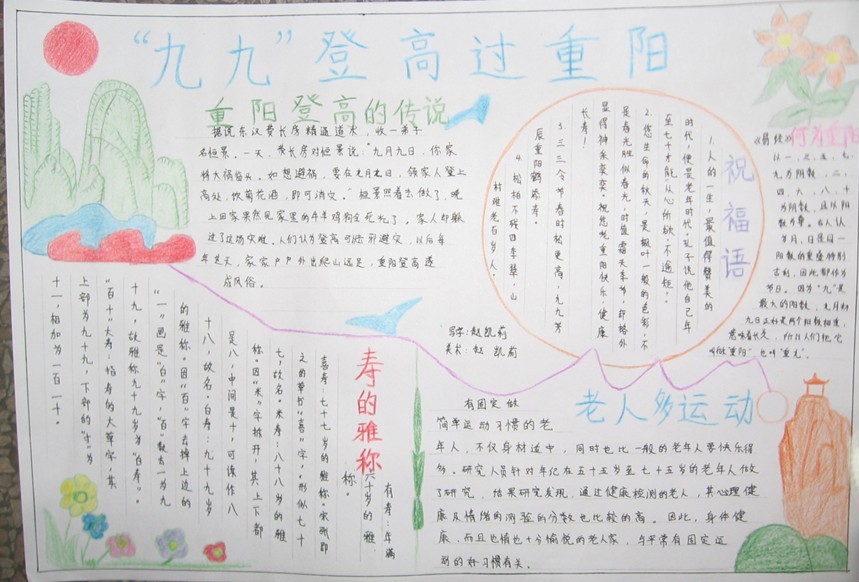 “九九”登高过重阳
重阳登高的传说
据说东汉费长房精通道术，收一弟子
名恒景。一天，费长房对恒景说：“九月九日，你家
将大祸临头。如想避祸，要在九月九日，领家人登上
高处，饮菊花酒，即可消灾。”
上回家果然见家里的牛羊鸡狗全死光了。家人却躲
过了这场灾难。人们认为登高可
年冬天，家家户户外出爬山远足，重阳登高遂
成风俗。
祝福语
1.人的一生，最值得赞美的
时代，便是老年时代，孔子说他自己年
至七十才能从心所欲，不逾矩。
2.您生命的秋天，是枫叶一般的色彩，不
是春光胜似春光，时值霜天季节，却格外
显得神采奕奕。祝您老重阳快乐，健康
长寿！
3.三三令节春时松更高，九九芳
辰重阳鹤添寿。
4.松柏不残四季翠，山
村难老百岁人。
何为重阳
《易经》
以一、三、五、七、
九为阳数，二、
四、六、八、十
为阴数，且以阳
数为尊。古人认
为月、日是同一
阳数的重叠特别
吉利，因此即作为
节日。因为“九”是
最大的阳数，九月初
九日正好是两个阳数相重，
意味着长久，所以人们把它
叫做“重阳”也叫“重九”。
写字：赵凯莉
美术：赵凯莉
寿的雅称
有寿：年满
六十岁的雅
称。
喜寿：七十七岁的雅称。宋徽
之的草书“喜”字，形似七十
七，故名。米寿：八十八岁的雅
称。因“米”字拆开，其上下都
是八，中间是十，可读作八
十八，故名。白寿：九十九岁
的雅称。因“百”字去掉上边的
“一”画是“白”字，“百”缺去一为九
十九，故雅称九十九岁为“白寿”。
“百十”大寿：指寿的大草字，其
上部为九十九，下部的“寸”为
十一，相加为一百一十。
老人多运动
有固定做
简单运动习惯的老
年人，不仅身材适中，同时也比一般的老年人要快乐得
多。研究人员针对年纪在五十五岁至七十五岁的老年人做
了研究，结果研究发现，通过健康检测的老人，其心理健
康及情绪的测验的分数也比较的高。因此，身体健
康，而且也情也十分愉悦的老人家，与平常有固定运
动的好习惯有关。